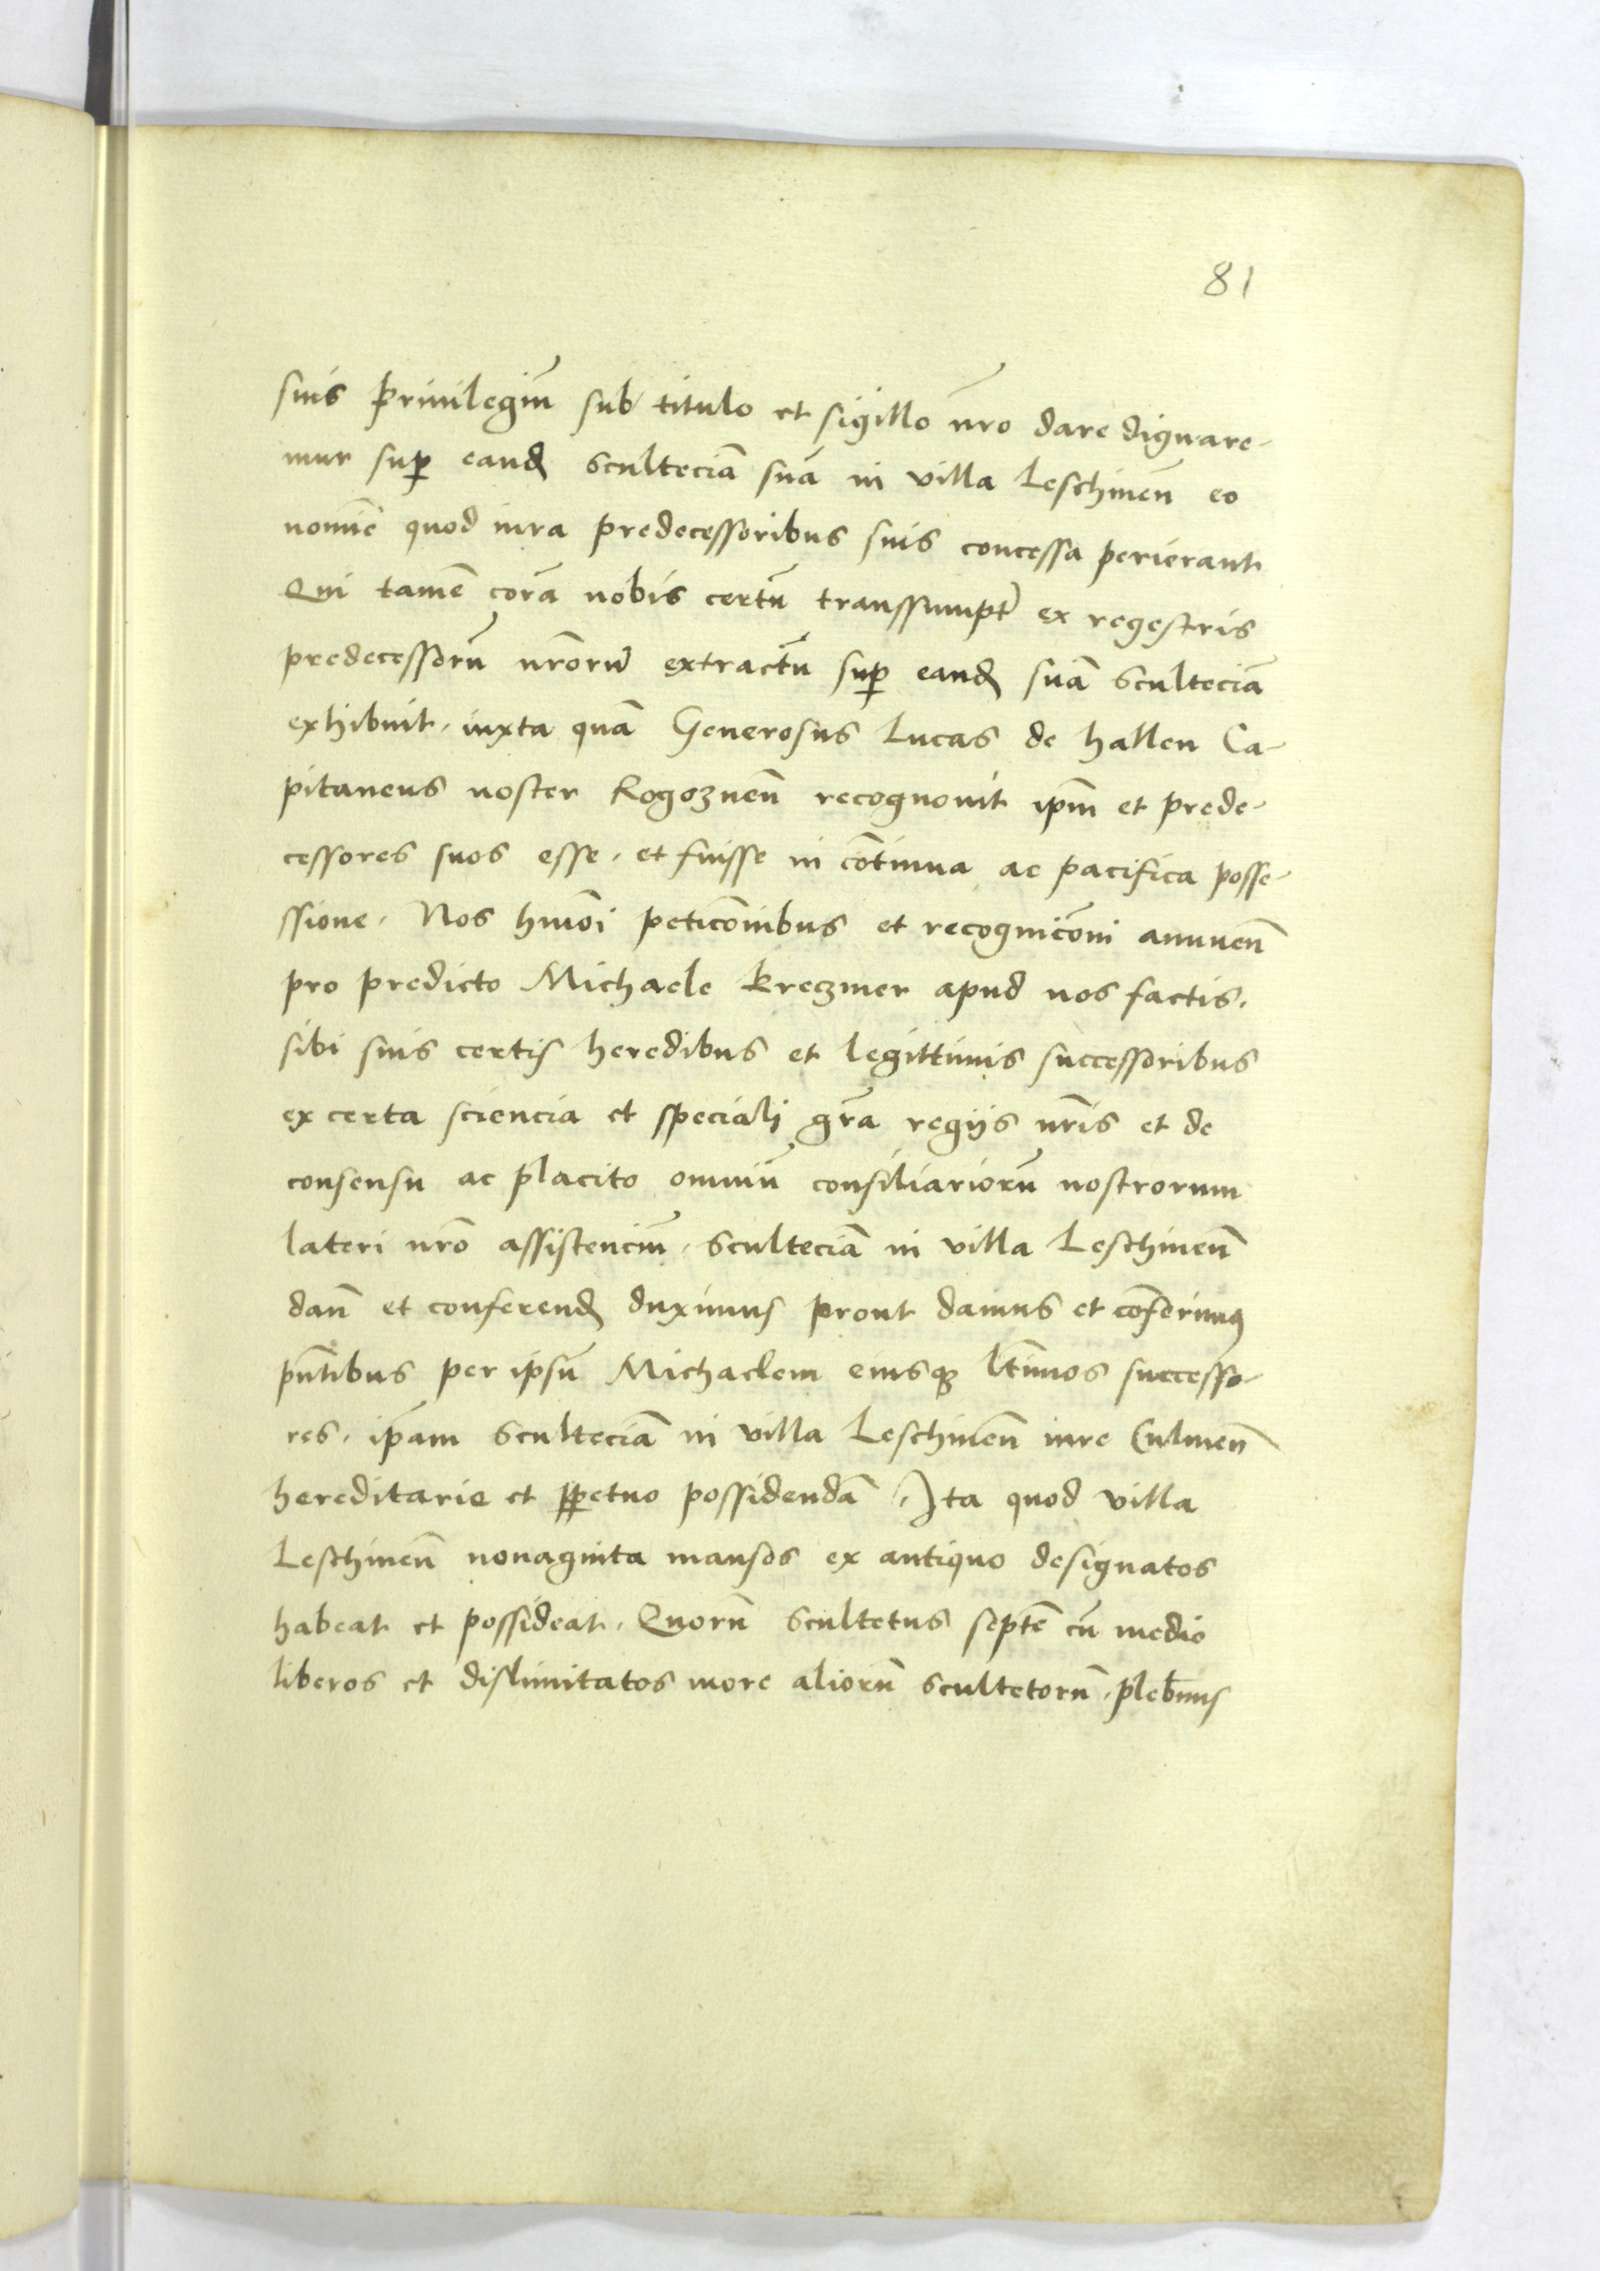 81
suis priuilegiu̅ sub titulo et sigillo n̅ro dare dignare-
mur sup̱ eanḏ scultecia̅ sua̅ in villa Leschinen̅ eo
nomi̅e quod iura predecessoribus suis concessa perierant
Qui tame̅ cora̅ nobis certu̅ transsumpt̅ ex regestris
predecessoru̅ n̅roru̅ extractu̅ sup̱ eanḏ sua̅ scultecia̅
exhibuit. iuxta qua̅ Generosus Lucas de hallen Ca-
pitaneus noster Rogoznen̅ recognouit ip̅m et prede-
cessores suos esse. et fuisse in co̅tinua ac pacifica posse-
ssione. Nos hmo̅i petico̅nibus et recognico̅ni annuen̅
pro predicto Michaele Kreczmer apud nos factis.
sibi suis certis heredibus et legittimis successoribus
ex certa sciencia et speciali gr̅a regijs nr̅is et de
consensu ac placito omniu̅ consiliarioru̅ nostrorum
lateri nr̅o assistenciu̅. scultecia̅ in villa Leschinen̅
dan̅ et conferenḏ duximus prout damus et co̅ferimꝰ
pn̅tibus per ipsu̅ Michaelem eiusqꝫ l̅timos successo-
res. ip̅am scultecia̅ in villa Leschinen̅ iure Culmen̅
hereditarie et ꝑpetuo possidenda̅. Ita quod villa
Leschinen̅ nonaginta mansos ex antiquo designatos
habeat et possideat. Quoru̅ scultetus septe̅ cu̅ medio
liberos et dislimitatos more alioru̅ scultetoru̅. pleb̅nus